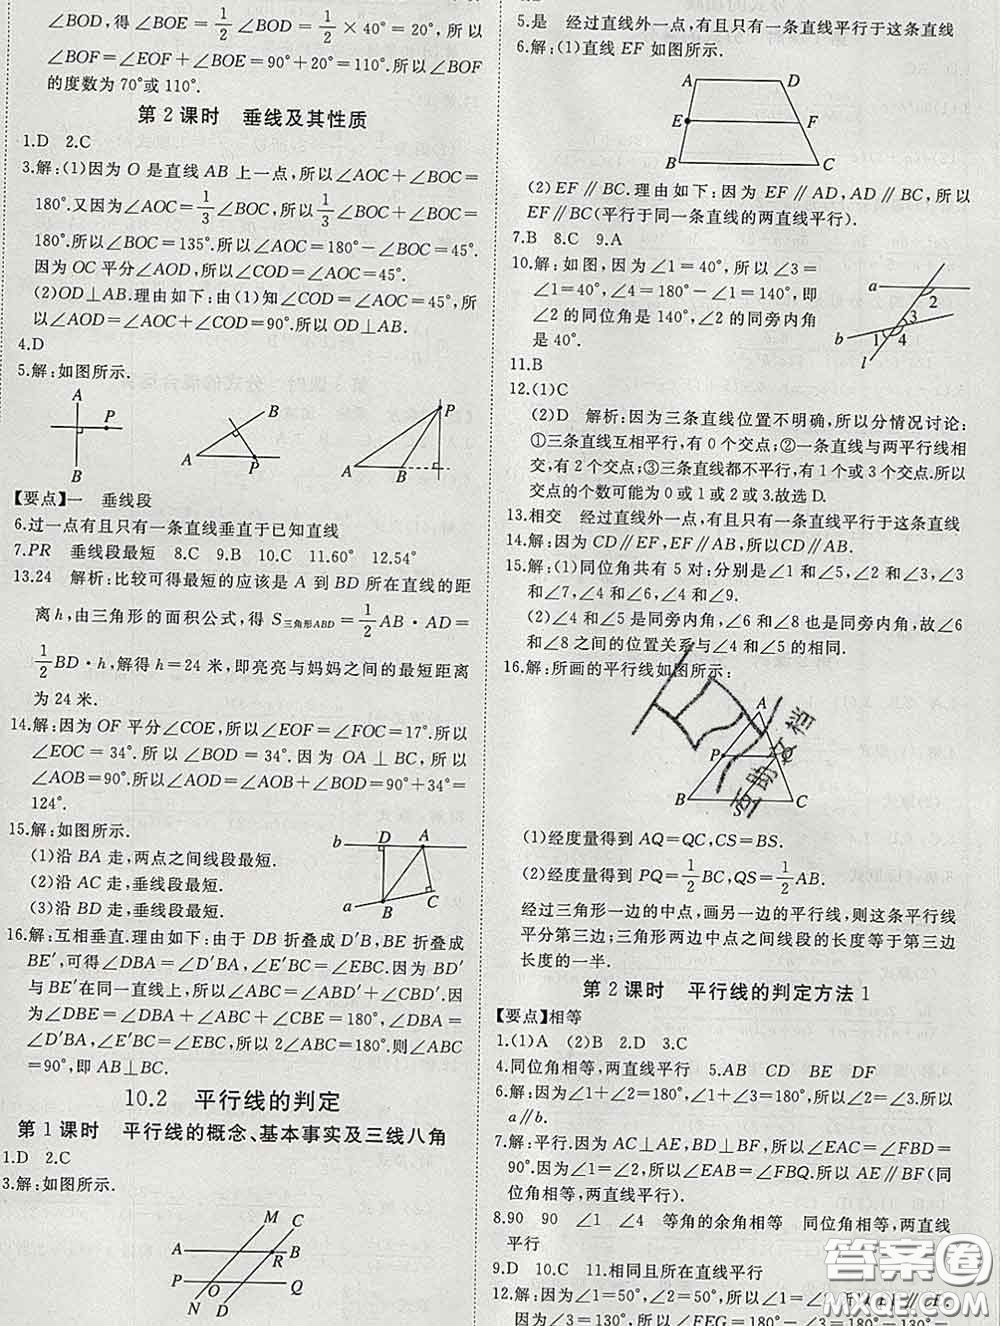 ∠BOD，得∠BOE=1/2∠BOD=1/2×40°=20°，所以
∠BOF=∠EOF+∠BOE=90°+20°=110°.所以∠BOF
的度数为70°或110°.
第2课时 垂线及其性质
1.D 2.C
3.解:(1)因为O是直线AB上一点,所以∠AOC+∠BOC=
180°.又因为∠AOC=1/3∠BOC,所以1/3∠BOC+∠BOC=
180°.所以∠BOC=135°.所以∠AOC=180°-∠BOC=45°.
因为OC平分∠AOD,所以∠COD=∠AOC=45°.
(2)OD⊥AB.理由如下:由(1)知∠COD=∠AOC=45°,所
以∠AOD=∠AOC+∠COD=90°.所以OD⊥AB.
4.D
5.解:如图所示.
A
P
B
B
A
P
P
A
B
C
【要点】一 垂线段
6.过一点有且只有一条直线垂直于已知直线
7.PR 垂线段最短 8.C 9.B 10.C 11.60° 12.54°
13.24 解析:比较可得最短的应该是A到BD所在直线的距
离h,由三角形的面积公式,得S三角形ABD=1/2AB·AD=
1/2BD·h,解得h=24米,即亮亮与妈妈之间的最短距离
为24米.
14.解:因为OF平分∠COE,所以∠EOF=∠FOC=17°.所以
∠EOC=34°.所以∠BOD=34°.因为OA⊥BC,所以
∠AOB=90°.所以∠AOD=∠AOB+∠BOD=90°+34°=
124°.
15.解:如图所示.
(1)沿BA走,两点之间线段最短.
(2)沿AC走,垂线段最短.
(3)沿BD走,垂线段最短.
D A
b
a
B
C
16.解:互相垂直.理由如下:由于DB折叠成D'B,BE折叠成
BE',可得∠DBA=∠D'BA,∠EBC=∠E'BC.因为BD'
与BE'在同一直线上,所以∠ABC=∠ABD'+∠CBE'.所
以∠DBE=∠DBA+∠ABC+∠CBE=180°,∠DBA=
∠D'BA,∠E'BC=∠EBC,所以2∠ABC=180°.则∠ABC=
90°,即AB⊥BC.
10.2 平行线的判定
第1课时 平行线的概念、基本事实及三线八角
1.D 2.C
3.解:如图所示.
M
C
A
B
R
P
O
Q
N
D
5.是 经过直线外一点,有且只有一条直线平行于这条直线
6.解:(1)直线EF如图所示.
A D
E F
B C
(2)EF∥BC.理由如下:因为EF∥AD,AD∥BC,所以
EF∥BC(平行于同一条直线的两直线平行).
7.B 8.C 9.A
10.解:如图,因为∠1=40°,所以∠3=
∠1=40°,∠4=180°-∠1=140°,即
∠2的同位角是140°,∠2的同旁内角
是40°.
a
2
3
b
1
4
l
11.B
12.(1)C
(2)D 解析:因为三条直线位置不明确,所以分情况讨论:
①三条直线互相平行,有0个交点;②一条直线与两平行线相
交,有2个交点;③三条直线都不平行,有1个或3个交点.所以
交点的个数可能为0或1或2或3.故选D.
13.相交 经过直线外一点,有且只有一条直线平行于这条直线
14.解:因为CD∥EF,EF∥AB,所以CD∥AB.
15.解:(1)同位角共有5对:分别是∠1和∠5,∠2和∠3,∠3
和∠7,∠4和∠6,∠4和∠9.
(2)∠4和∠5是同旁内角,∠6和∠8也是同旁内角,故∠6
和∠8之间的位置关系与∠4和∠5的相同.
16.解:所画的平行线如图所示:
A
P
B
S
C
(1)经度量得到AQ=QC,CS=BS.
(2)经度量得到PQ=1/2BC,QS=1/2AB.
经过三角形一边的中点,画另一边的平行线,则这条平行线
平分第三边;三角形两边中点之间线段的长度等于第三边
长度的一半.
第2课时 平行线的判定方法1
【要点】相等
1.(1)A (2)B 2.D 3.C
4.同位角相等,两直线平行 5.AB BE DF
6.解:因为∠1+∠2=180°,∠2+∠3=180°,所以∠1=∠3.所以
a∥b.
7.解:平行.因为AC⊥AE,BD⊥BF,所以∠EAC=∠FBD=
90°.因为∠1=∠2,所以∠EAB=∠FBQ.所以AE∥BF(同
位角相等,两直线平行).
8.90 90 ∠1 ∠4 等角的余角相等 同位角相等,两直线
平行
9.D 10.C 11.相同且所在直线平行
12.解:因为∠1=50°,∠2=50°,所以∠1=∠2.
因为∠3=130°,所以∠FEG=180°-∠3=180°-130°=
答案圈